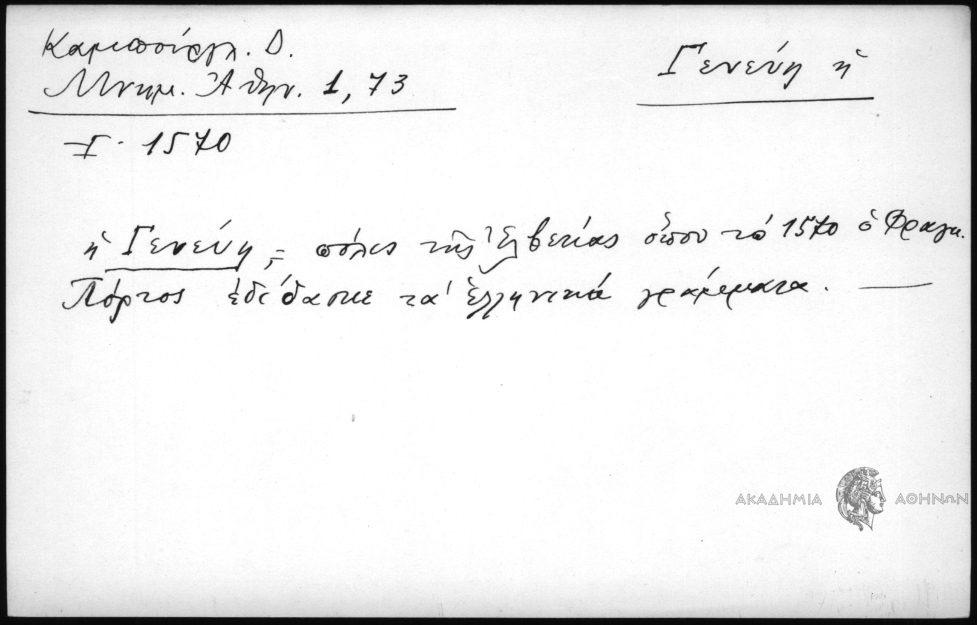 Καμπούργλ. Δ.
Μνημ. Ἀθην. 1, 73
Γενεύη ἡ
Ι. 1570
ἡ Γενεύη, = πόλις τῆς Ἑλβετίας ὅπου τὸ 1570 ὁ Φραγκ.
Πόρτος ἐδίδασκε τὰ ἑλληνικά γράμματα. —
ΑΚΑΔΗΜΙΑ ΑΘΗΝΩΝ